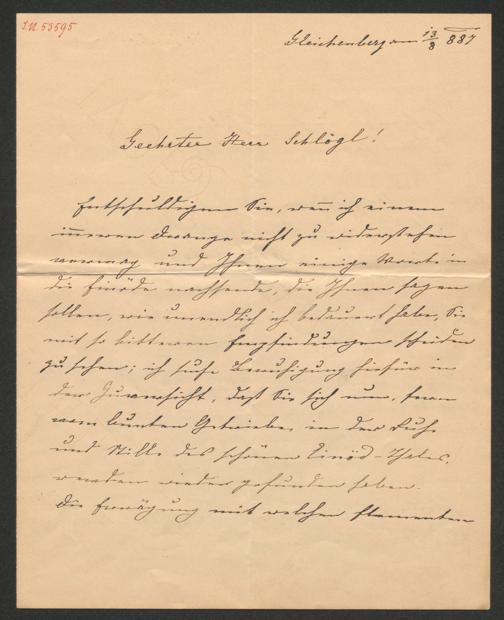 I.N. 53595
Gleichenberg am 13/8 887
Geehrter Herr Schlögl!
Entschuldigen Sie, wenn ich einem
inneren Drange nicht zu widerstehen
vermag und Ihnen einige Worte in
die Einöde nachsende, die Ihnen sagen
sollen, wie unendlich ich bedauert habe, Sie
mit so bitteren Empfindungen scheiden
zu sehen; ich suche Beruhigung hiefür in
der Zuversicht, daß Sie sich nun, fern
vom bunten Getriebe, in der Ruhe
und Stille des schönen Einöd-Thales,
werden wieder gefunden haben.
Die Erwägung mit welchen Elementen